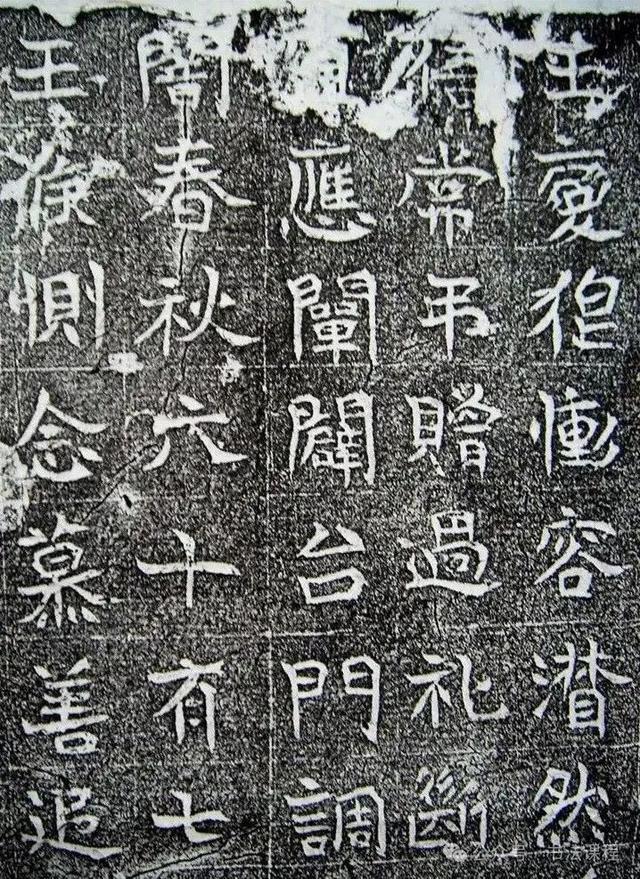 主慟容潸然
常弔贈過礼斷
應闡闢台門調
春秋六十有七
王惻念慕善追
公众号·书法课程